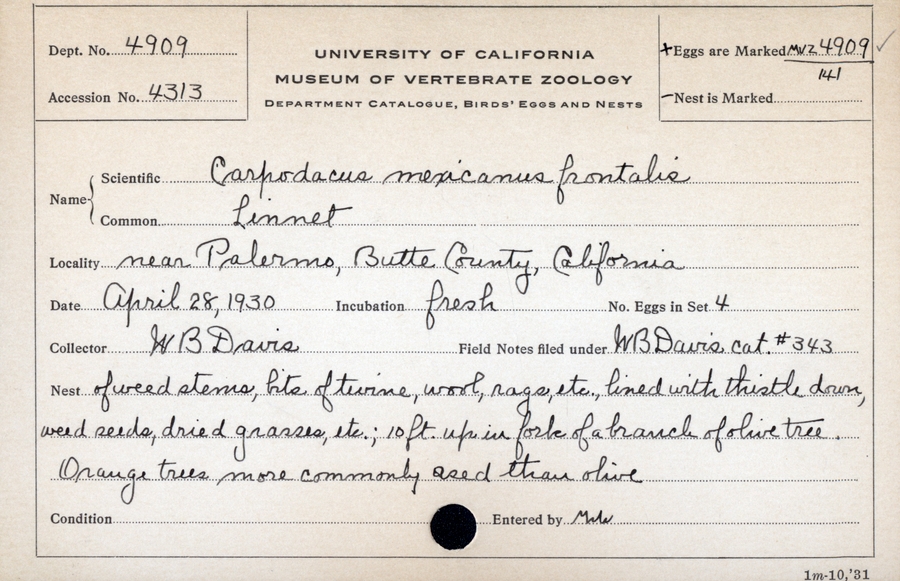 Dept. No. 4909
Accession No. 4313
UNIVERSITY OF CALIFORNIA
MUSEUM OF VERTEBRATE ZOOLOGY
DEPARTMENT CATALOGUE, BIRDS' EGGS AND NESTS
+Eggs are Marked MVZ 4909 ✓
141
–Nest is Marked
Name { Scientific Carpodacus mexicanus frontalis
Common Linnet
Locality near Palermo, Butte County, California
Date April 28, 1930 Incubation fresh No. Eggs in Set 4
Collector WB Davis Field Notes filed under WB Davis cat. #343
Nest of weed stems, bits of twine, wool, rags, etc., lined with thistle down,
weed seeds, dried grasses, etc.; 10 ft. up in fork of a branch of olive tree.
Orange trees more commonly used than olive
Condition Entered by
1m-10,'31